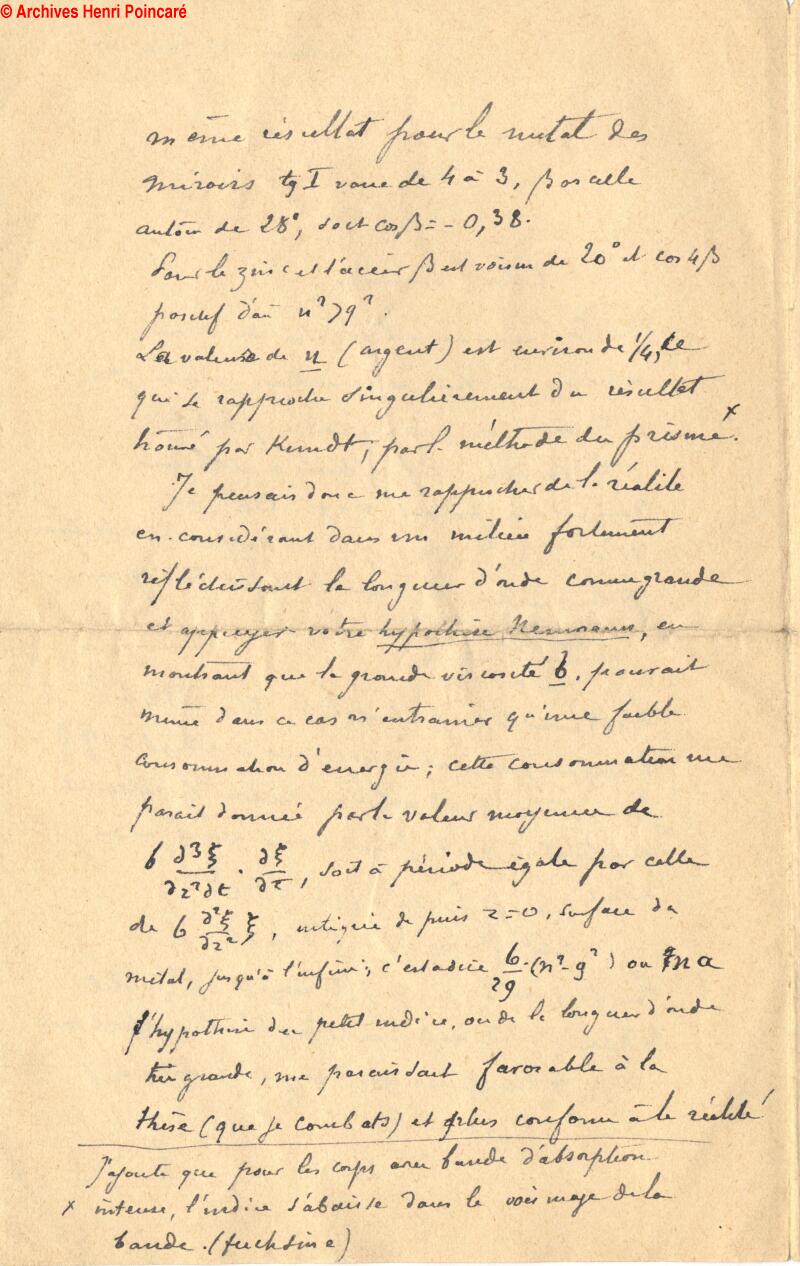 © Archives Henri Poincaré
même résultat pour le métal des
miroirs tg I varie de 4 à 3, β oscille
autour de 28°, soit cos β = - 0,38.
Pour le zinc et l'acier β est voisin de 20° et cos 4β
positif d'où n² > g².
La valeur de n (argent) est environ de 1/4, ce
qui se rapproche singulièrement du résultat
trouvé par Kundt, par la méthode du prisme. x
Je pensais donc me rapprocher de la réalité
en considérant dans un milieu fortement
réfléchissant la longueur d'onde comme grande
et appuyer votre hypothèse Neumann, en
montrant que la grande viscosité b, pourrait
même dans ce cas n'entrainer qu'une faible
consommation d'énergie ; cette consommation me
parait donnée par la valeur moyenne de
b ∂³ξ/∂z²∂t · ∂ξ/∂t, soit à période égale par celle
de b ∂²ξ/∂z² ξ, intégrée depuis z=0, surface du
métal, jusqu'à l'infini ; c'est à dire b/2g · (n² - g²) ou
l'hypothèse du petit indice, ou de la longueur d'onde
très grande, me paraissait favorable à la
thèse (que je combats) et plus conforme à la réalité !
J'ajoute que pour les corps avec bande d'absorption
x intense, l'indice s'abaisse dans le voisinage de la
bande. (fuchsine)